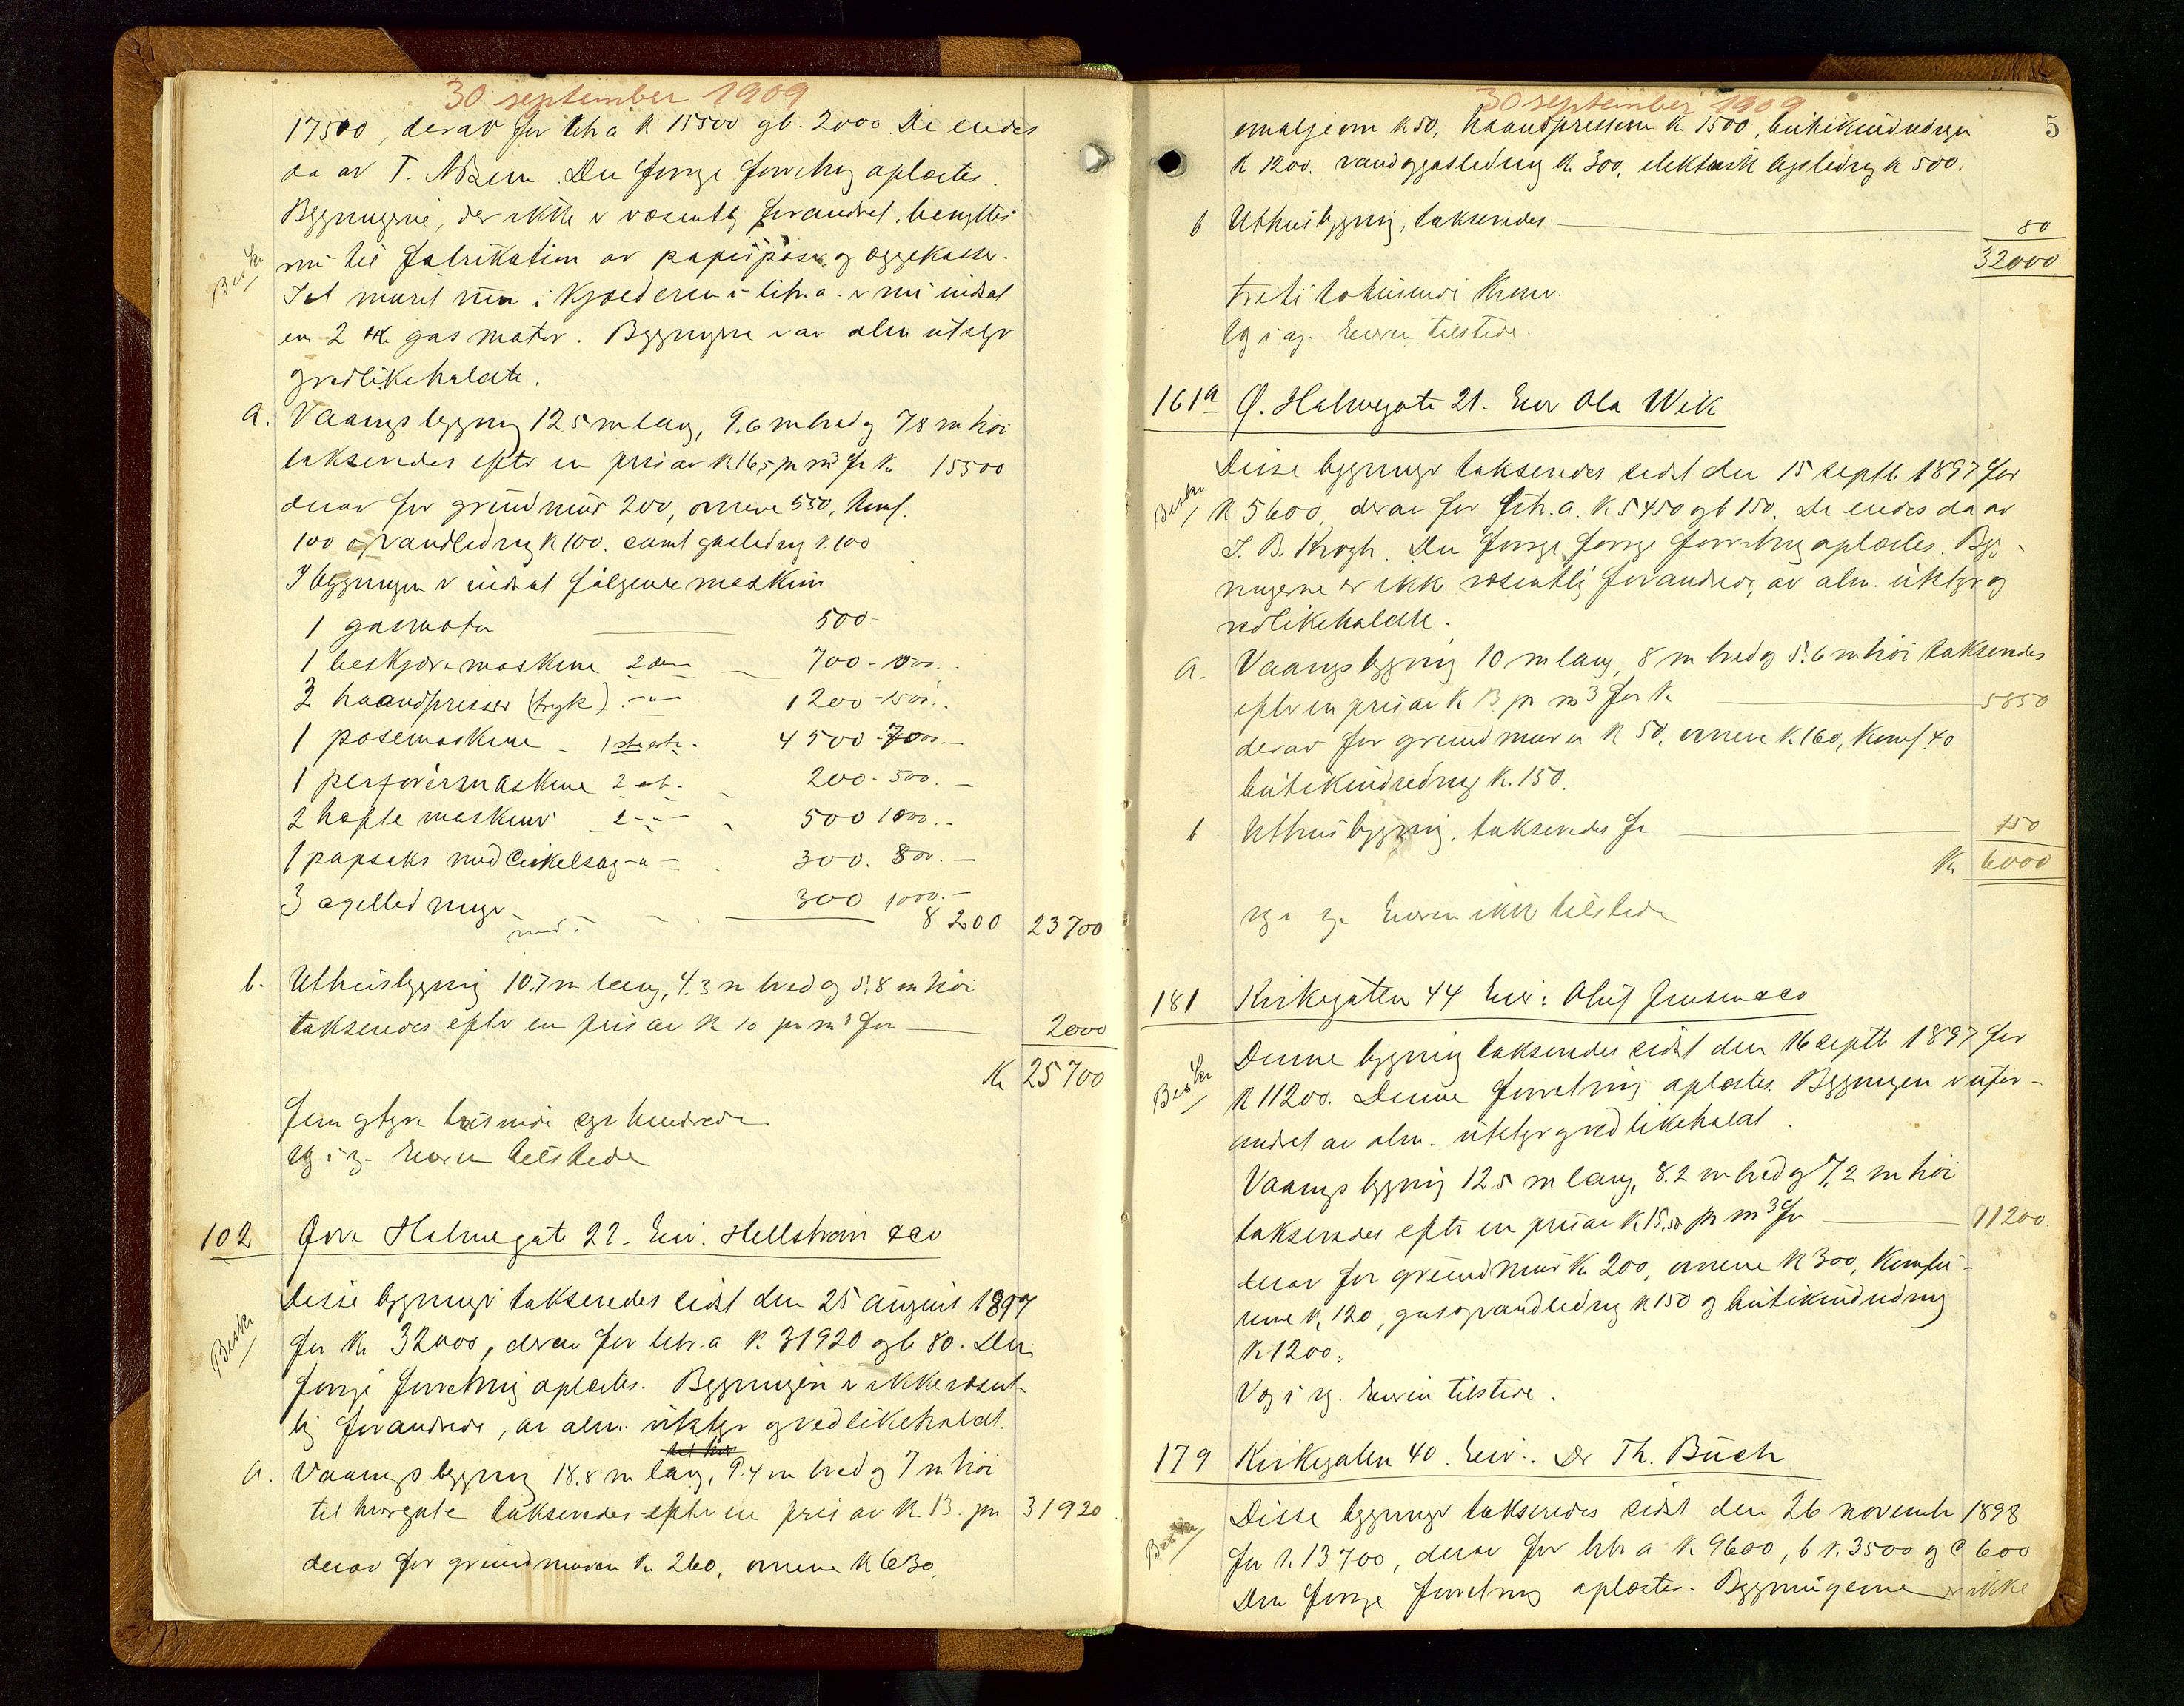 30 september 1909
17500, derav for litra a K 15500 og b. 2000. De eiedes
da av T. Nilsen. Den forrige forretning oplæstes.
Bygningerne, der ikke er væsentlig forandret, benyttes
Beskr
nu til fabrikation av papirposer og æggekasser.
I et muret rum i kjælderen i litr. a. er nu indsat
en 2 HK gasmotor. Bygningerne er av alm utstyr
og vedlikeholdte.
a. Vaaningsbygning 12.5 m lang, 9.6 m bred og 7.8 m høi
takseredes efter en pris av K 16,5 pr m³ for K 15500
derav for grundmur 200, ovnene 550, komf.
100 og vandledning K 100. samt gasledning K 100
I bygningen er indsat følgende maskiner
1 gasmotor 500-
1 beskjæremaskine 2 den 700-
2 haandpresser (tryk) -"- 1200-1500.
1 posemaskine - 1ste et. 4500-7000.-
1 perforermaskine 2 et. 200-500.-
2 hefte maskiner 2 - - 500 1000.-
1 papsaks med Cirkelsag -"- 300. 800.-
3 axelledninger 300 1000.-
8200 23700
b. Uthusbygning 10.7 m lang, 4.3 m bred og 5.8 m høi
takseredes efter en pris av K 10 pr m³ for 2000
K 25700
fem og tyve tusinde syv hundrede.
Vg i vg. Eieren tilstede
102 Øvre Holmegate 22. Eier. Hellstrøm & Co
Disse bygninger takseredes sidst den 25 august 1897
Beskr
for K 32000, derav for litr. a K 31920 og b 80. Den
forrige forretning oplæstes. Bygningen er ikke væsent-
lig forandrede, av alm. utstyr og vedlikeholdt.
a. Vaaningsbygning 18.8 m lang, 9.4 m bred og 7 m høi
til hvorgate takseredes efter en pris av K 13. pr 31920
derav for grundmuren K 260, ovnene K 630,
30 september 1909
5
emaljeovn K 50, haandpresserne K 1500, butikindredningen
K 1200. vand og gasledning K 300, elektrisk lysledning K 500.
b Uthusbygning, takseredes 80
32000
tretti to tusinde Kroner.
Vg i vg. Eieren tilstede.
161a Ø. Holmegate 21. Eier Ola Wik
Disse bygninger takseredes sidst den 15 septb. 1897 for
Beskr
K 5600, derav for litr. a. K 5450 og b 150. De eiedes da av
J. B. Krogh. Den forrige forrige forretning oplæstes. Byg-
ningerne er ikke væsentlig forandrede, av alm. utstyr og
vedlikeholdte.
a. Vaaningsbygning 10 m lang, 8 m bred og 5.6 m høi takseredes
efter en pris av K 13 pr m³ for K 5850
derav for grundmuren K 50, ovnene K 160, Komf. 40
butikindredning K. 150.
b Uthusbygning, takseredes for 150
K 6000
Vg i vg. Eieren ikke tilstede
181 Kirkegaten 44 Eier: Oluf Jensen & Co
Denne bygning takseredes sidst den 16 septb 1897 for
Beskr
K 11200. Denne forretning oplæstes. Bygningen er ufor-
andret av alm. utstyr og vedlikeholdt.
Vaaningsbygning 12.5 m lang, 8.2 m bred og 7.2 m høi
takseredes efter en pris av K 15.50 pr m³ for 11200.
derav for grundmur K 200, ovnene K 300, Komfu-
rene K 120, gas og vandledning K 150 og butikindredning
K 1200.
Vg i vg. Eieren tilstede.
179 Kirkegaten 40. Eier. Dr Th. Buch
Disse bygninger takseredes sidst den 26 novembr 1898
Beskr
for K. 13700, derav for litr a K 9600, b K. 3500 og c 600
Den forrige forretning oplæstes. Bygningerne er ikke